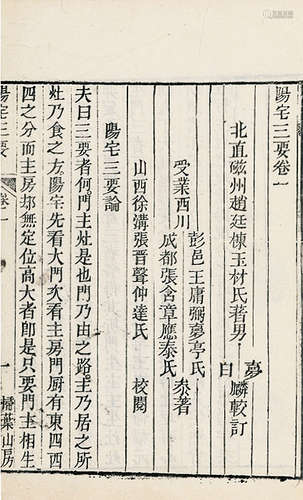 陽宅三要卷一
北直磁州趙廷棟玉材氏著男夢白麟較訂
受業西川
彭邑王庸弼夢亭氏
成都張含章應泰氏
叅著
山西徐溝張晉聲仲達氏 校閱
陽宅三要論
夫曰三要者何門主灶是也門乃由之路主乃居之所
灶乃食之方陽宅先看大門次看主房門廚有東四西
四之分而主房却無定位高大者卽是只要門主相生
陽宅三要 卷一 一 掃葉山房